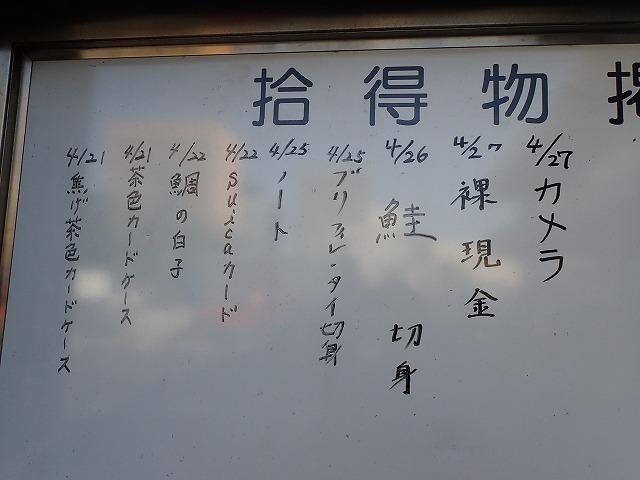 拾得物掲
4/27 カメラ
4/27 裸現金
4/26 鮭 切身
4/25 ブリ、アレ・タイ切身
4/25 ノート
4/22 Suicaカード
4/22 鯛の白子
4/21 茶色カードケース
4/21 焦げ茶色カードケース